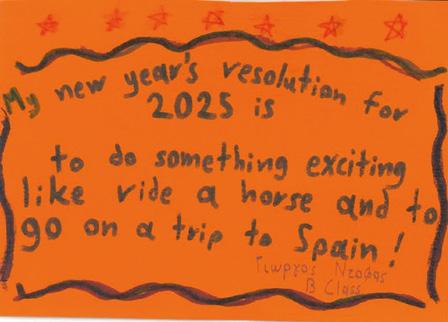 My new year's resolution for
2025 is
to do something exciting
like ride a horse and to
go on a trip to Spain!
Γιωργος Ντοφας
B Class